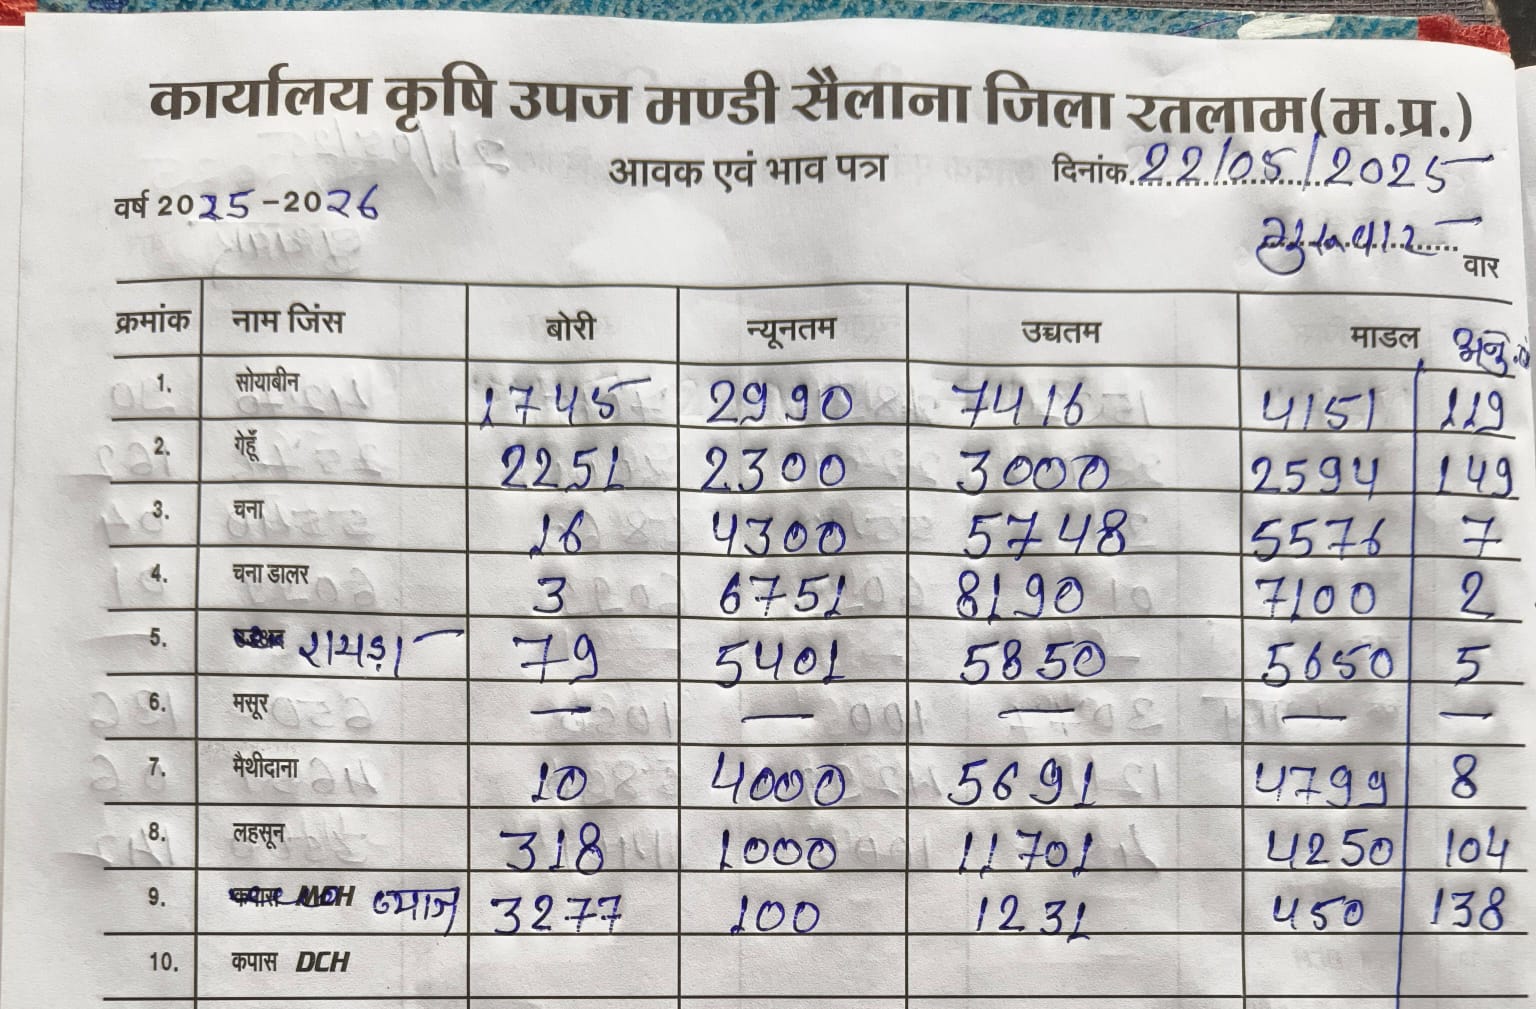 कार्यालय कृषि उपज मण्डी सैलाना जिला रतलाम(म.प्र.)
आवक एवं भाव पत्र
दिनांक 22/05/2025
वर्ष 2025-2026
गुरुवार वार
क्रमांक नाम जिंस बोरी न्यूनतम उच्चतम माडल अनु.
1. सोयाबीन 1745 2990 7416 4151 119
2. गेहूँ 2251 2300 3000 2594 149
3. चना 16 4300 5748 5576 7
4. चना डालर 3 6751 8190 7100 2
5. रायड़ा 79 5401 5850 5650 5
6. मसूर — — — — —
7. मैथीदाना 10 4000 5691 4799 8
8. लहसून 318 1000 11701 4250 104
9. प्याज 3277 100 1231 450 138
10. कपास DCH